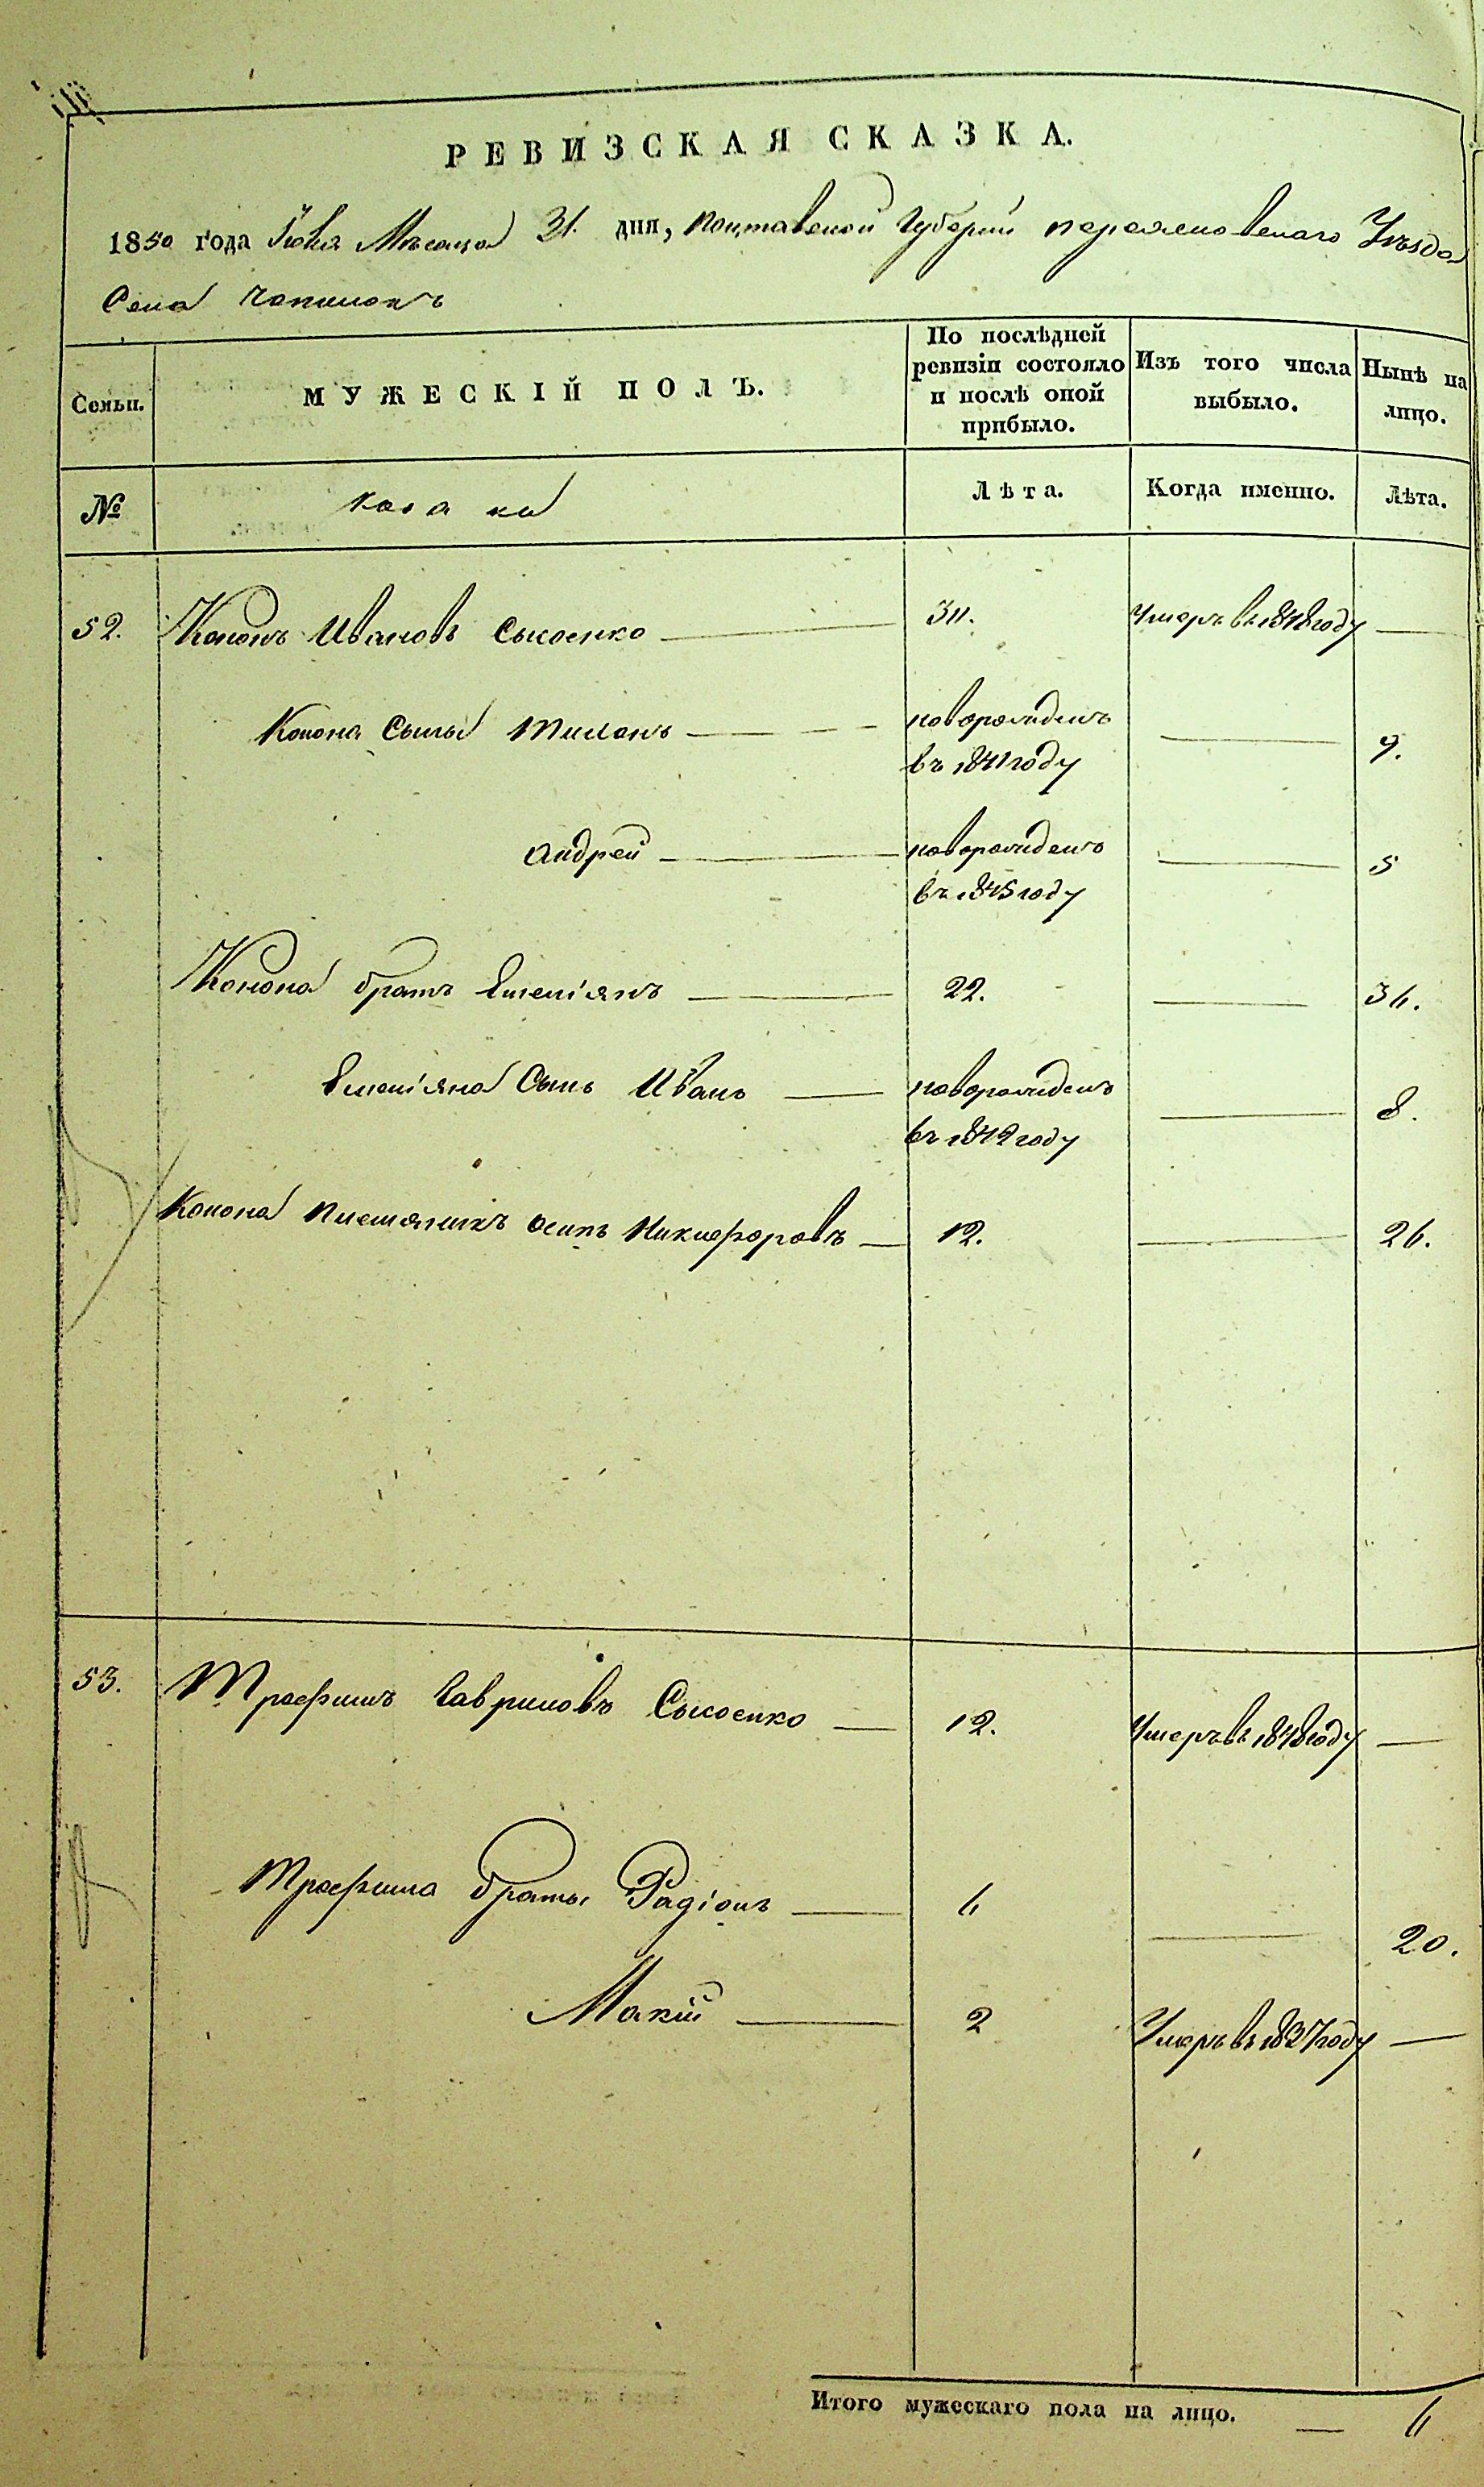 РЕВИЗСКАЯ СКАЗКА.
1850 года Іюля Мѣсяца 31. дня, Полтавской Губерніи Переяславскаго Уѣзда
Села
Семьи. МУЖЕСКІЙ ПОЛЪ. По послѣдней ревизіи состояло и послѣ оной прибыло. Изъ того числа выбыло. Нынѣ на лицо.
№ Козаки Лѣта. Когда именно. Лѣта.
52. Кононъ Ивановъ Сысоенко 34. Умеръ въ 1848 году
Конона Сыны новорожденъ
въ 1841 году 9.
Андрей новорожденъ
въ 1845 году 5
Конона братъ Емеліянъ 22. 36.
Емеліяна Сынъ Иванъ новорожденъ
въ 1842 году 8.
Конона племянникъ Осипъ Никифоровъ 12. 26.
53. Трофимъ Гавриловъ Сысоенко 12. Умеръ въ 1848 году
Трофима братья Радіонъ 6 20.
Мокій 2 Умеръ въ 1837 году
Итого мужескаго пола на лицо. 6